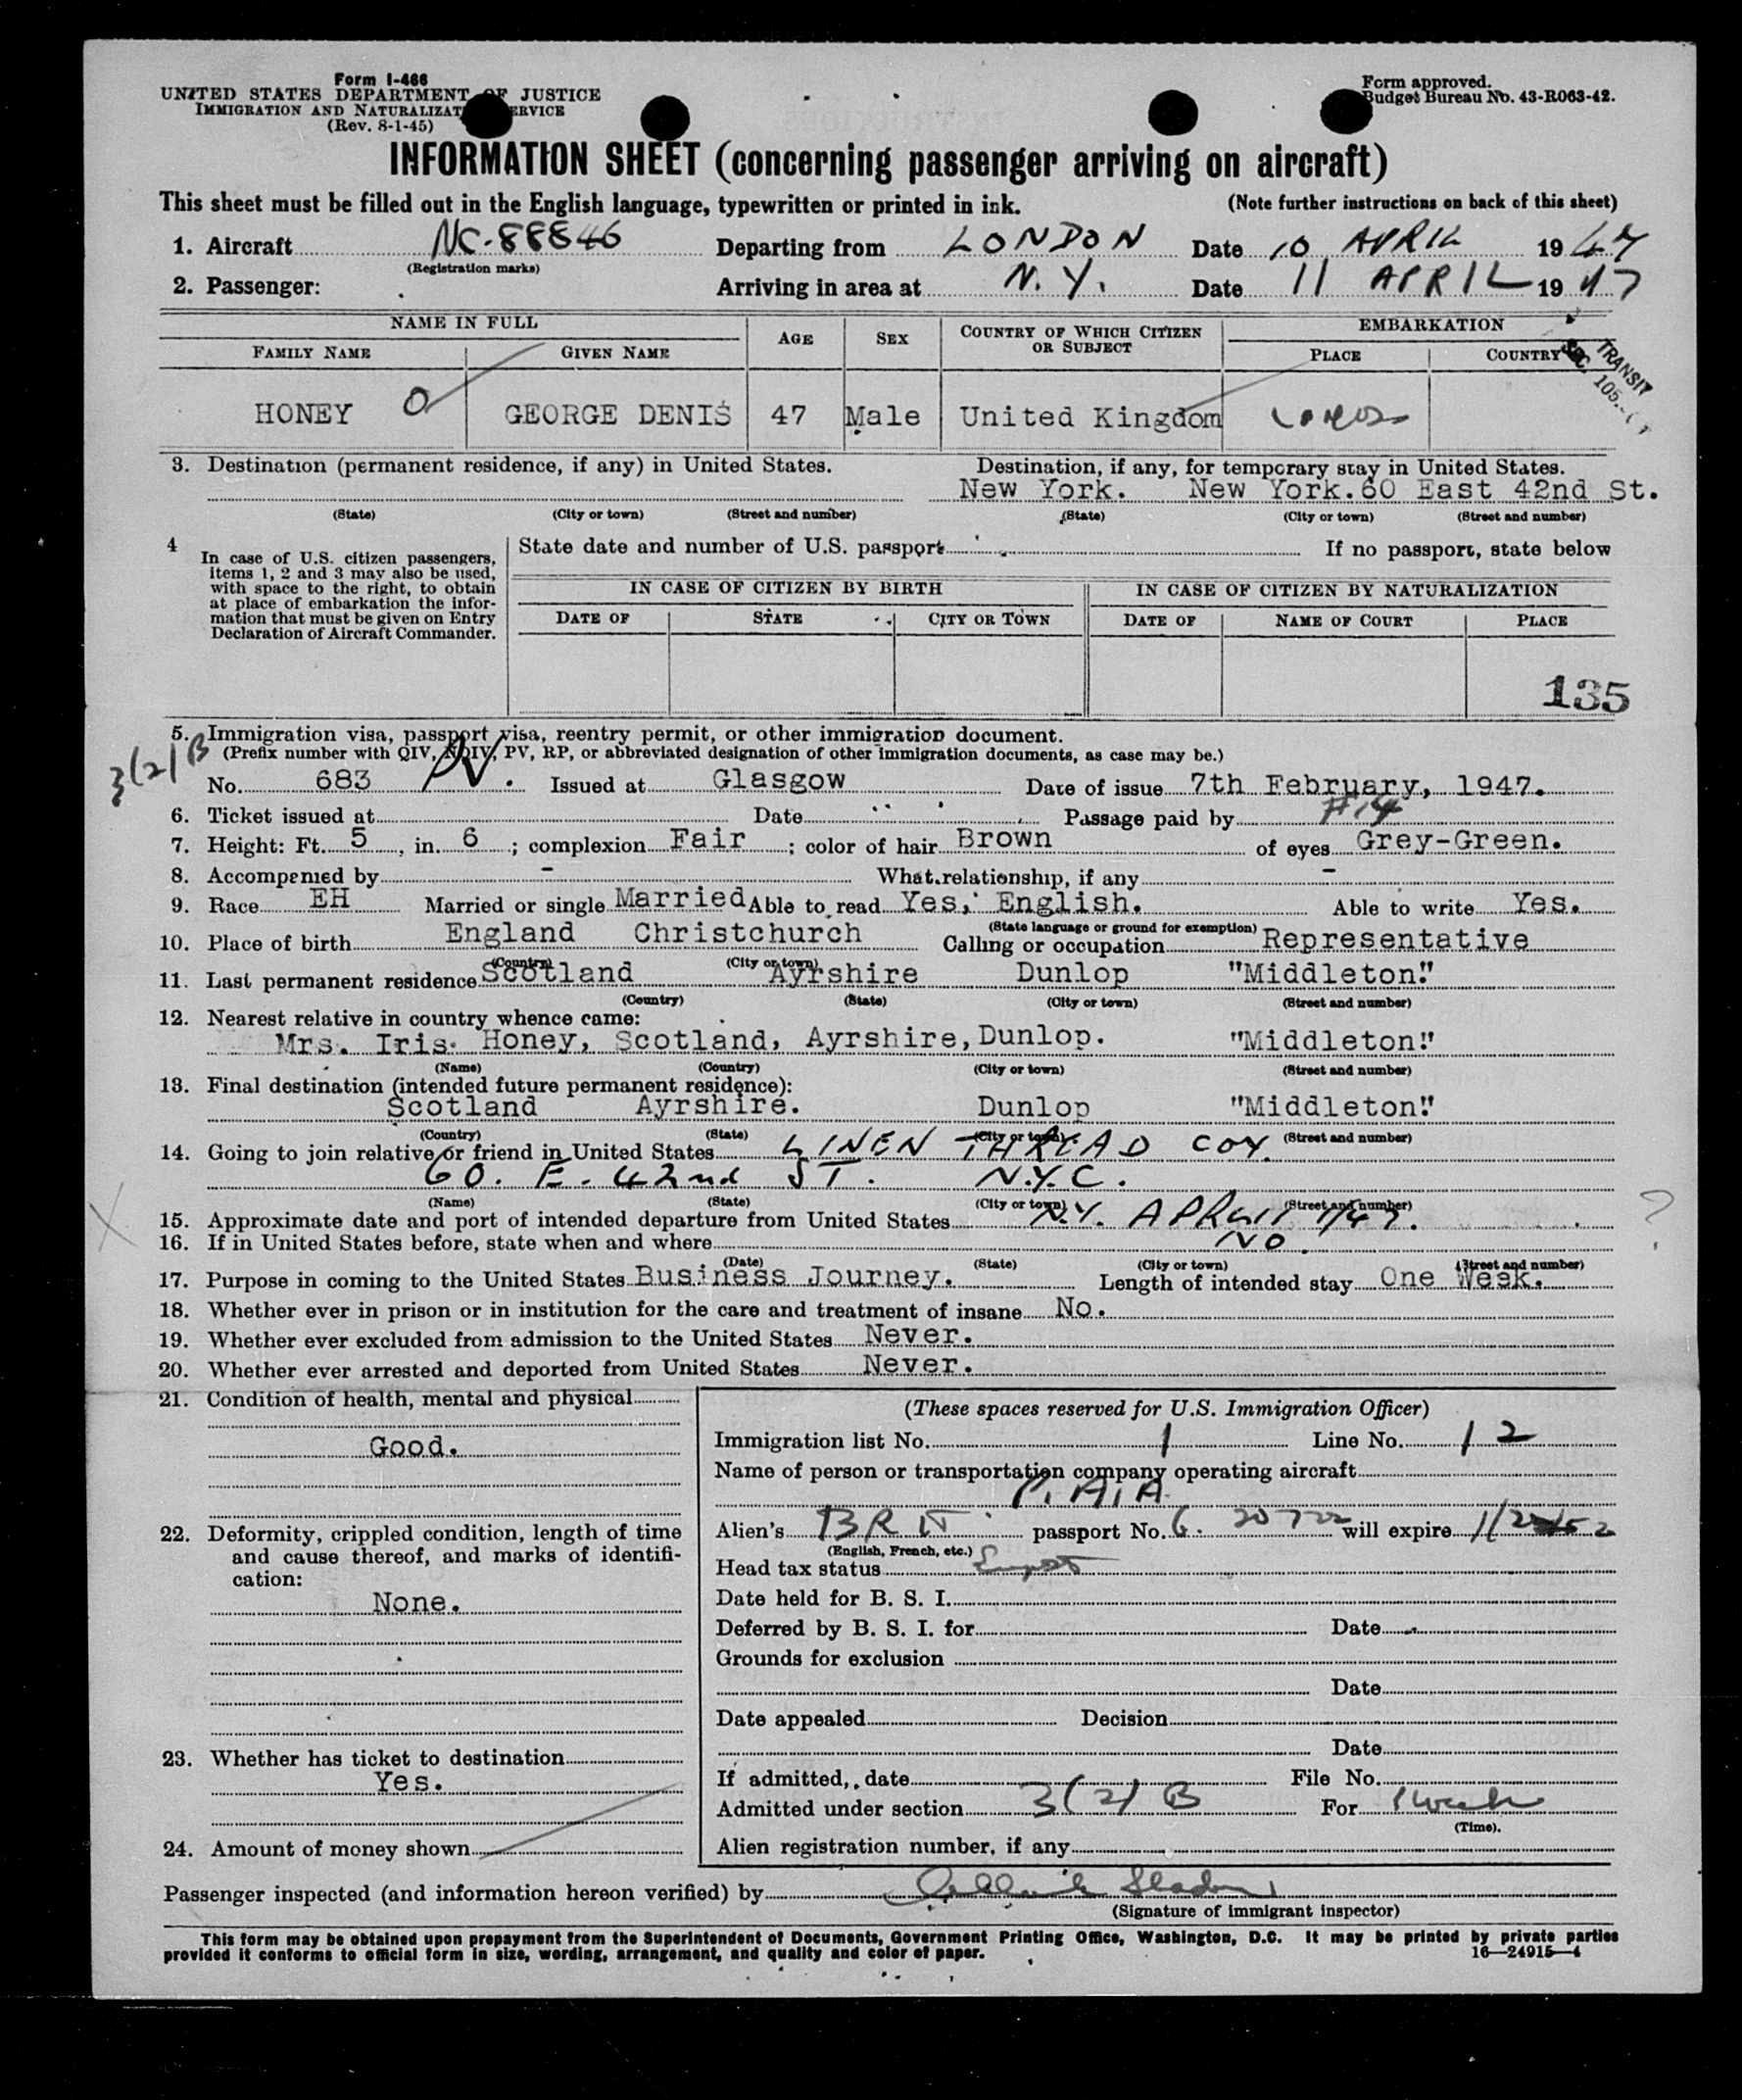 Form I-466
UNITED STATES DEPARTMENT OF JUSTICE
IMMIGRATION AND NATURALIZATION SERVICE
(Rev. 8-1-45)
Form approved.
Budget Bureau No. 43-R063-42.
INFORMATION SHEET (concerning passenger arriving on aircraft)
This sheet must be filled out in the English language, typewritten or printed in ink. (Note further instructions on back of this sheet)
1. Aircraft NC-88846 Departing from LONDON Date 10 APRIL 1947
(Registration marks)
2. Passenger: Arriving in area at N.Y. Date 11 APRIL 1947
NAME IN FULL AGE SEX COUNTRY OF WHICH CITIZEN OR SUBJECT EMBARKATION
FAMILY NAME GIVEN NAME PLACE COUNTRY
TRANSIT
SEC. 105.
HONEY GEORGE DENIS 47 Male United Kingdom
3. Destination (permanent residence, if any) in United States. Destination, if any, for temporary stay in United States.
New York. New York. 60 East 42nd St.
(State) (City or town) (Street and number) (State) (City or town) (Street and number)
4 In case of U.S. citizen passengers, items 1, 2 and 3 may also be used, with space to the right, to obtain at place of embarkation the information that must be given on Entry Declaration of Aircraft Commander.
State date and number of U.S. passport If no passport, state below
IN CASE OF CITIZEN BY BIRTH IN CASE OF CITIZEN BY NATURALIZATION
DATE OF STATE CITY OR TOWN DATE OF NAME OF COURT PLACE
135
5. Immigration visa, passport visa, reentry permit, or other immigration document.
(Prefix number with QIV, NQIV, PV, RP, or abbreviated designation of other immigration documents, as case may be.)
3(2)B
No. 683 PV. Issued at Glasgow Date of issue 7th February, 1947.
6. Ticket issued at Date Passage paid by #14
7. Height: Ft. 5, in. 6; complexion Fair; color of hair Brown of eyes Grey-Green.
8. Accompanied by - What relationship, if any -
9. Race EH Married or single Married Able to read Yes, English. Able to write Yes.
(State language or ground for exemption)
10. Place of birth England Christchurch Calling or occupation Representative
(Country) (City or town)
11. Last permanent residence Scotland Ayrshire Dunlop "Middleton."
(Country) (State) (City or town) (Street and number)
12. Nearest relative in country whence came:
Mrs. Iris Honey, Scotland, Ayrshire, Dunlop. "Middleton."
(Name) (Country) (City or town) (Street and number)
13. Final destination (intended future permanent residence):
Scotland Ayrshire. Dunlop "Middleton."
(Country) (State) (City or town) (Street and number)
14. Going to join relative or friend in United States LINEN THREAD COY.
60. E. 42nd ST. N.Y.C.
(Name) (State) (City or town) (Street and number)
15. Approximate date and port of intended departure from United States N.Y. APRIL
16. If in United States before, state when and where NO.
(Date) (State) (City or town) (Street and number)
17. Purpose in coming to the United States Business Journey. Length of intended stay One Week.
18. Whether ever in prison or in institution for the care and treatment of insane No.
19. Whether ever excluded from admission to the United States Never.
20. Whether ever arrested and deported from United States Never.
21. Condition of health, mental and physical
Good.
22. Deformity, crippled condition, length of time and cause thereof, and marks of identification:
None.
23. Whether has ticket to destination
Yes.
24. Amount of money shown
(These spaces reserved for U.S. Immigration Officer)
Immigration list No. 1 Line No. 12
Name of person or transportation company operating aircraft
P.A.A.
Alien's BRIT passport No. will expire
(English, French, etc.)
Head tax status
Date held for B. S. I.
Deferred by B. S. I. for Date
Grounds for exclusion
Date
Date appealed Decision
Date
If admitted, date File No.
Admitted under section 3(2) B For 1 week
(Time).
Alien registration number, if any
Passenger inspected (and information hereon verified) by
(Signature of immigrant inspector)
This form may be obtained upon prepayment from the Superintendent of Documents, Government Printing Office, Washington, D.C. It may be printed by private parties
provided it conforms to official form in size, wording, arrangement, and quality and color of paper. 16—24915-4